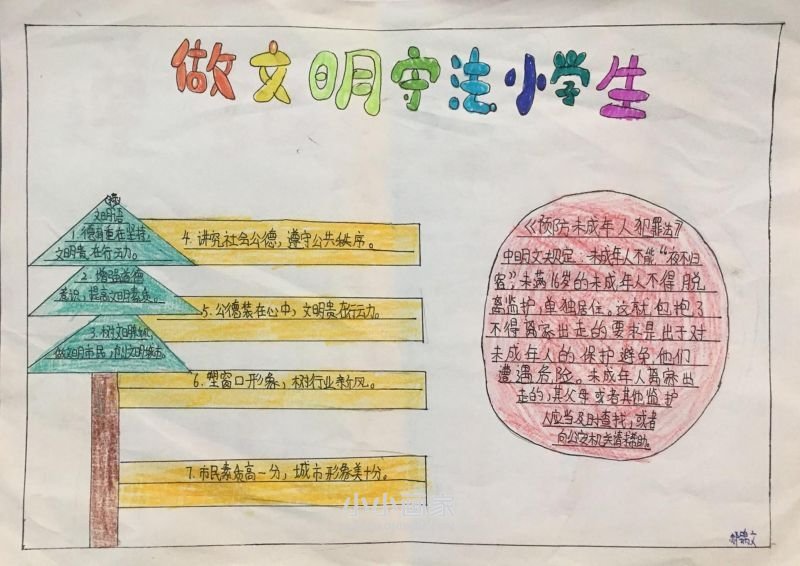 做文明守法小学生
文明语
1. 德育重在坚持,
文明贵在行动力。
2. 增强道德
意识,提高文明素质。
3. 树文明
做文明市民,创文明城市。
4. 讲究社会公德,遵守公共秩序。
5. 公德装在心中,文明贵在行动力。
6. 塑窗口形象,树行业新风。
7. 市民素质高一分,城市形象美十分。
《预防未成年人犯罪法》
中明文规定:未成年人不能“夜不归
宿”,未满16岁的未成年人不得脱
离监护,单独居住。这就包抱了
不得离家出走的要求是出于对
未成年人的保护避免他们
遭遇危险。未成年人离家出
走的,其父母或者其他监护
人应当及时查找,或者
向公安机关请求帮助。
小小画家